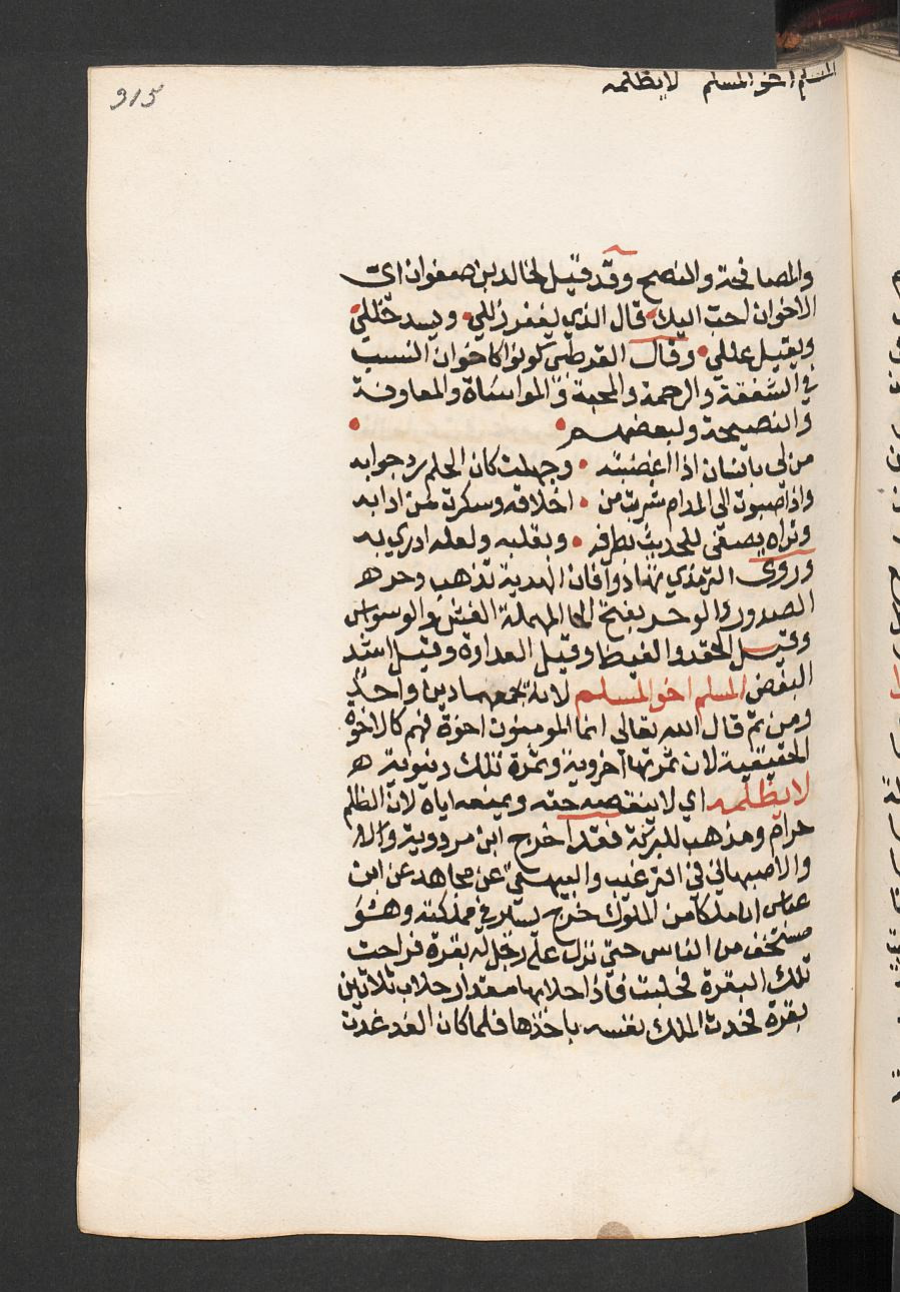 المسلم اخو المسلم لايظلمه
315
والمصافحة والنصح وقد قيل لخالد بن صفوان اي
الاخوان احب اليك قال الذي يغفر زللي ويسد خللي
ويقبل عللي وقال القرطبي كونوا كاخوان النسب
في الشفقة والرحمة والمحبة والمواساة والمعاونة
والنصيحة ولبعضهم
من لي بانسان اذا اغضبته وجهلت كان الحلم رد جوابه
واذا صبوت الى المدام شربت من اخلاقه وسكرت من ادابه
وتراه يصغي للحديث بطرفه وبقلبه ولعله ادري به
وروى الترمذي تهادوا فان الهدية تذهب وحر
الصدور والوحر بفتح الحا المهملة الغش والوسواس
وقيل الحقد والغيظ وقيل العداوة وقيل اشد
البغض المسلم اخو المسلم لانه يجمعهما دين واحد
ومن ثم قال الله تعالى انما المومنون اخوة فهم كالاخوة
الحقيقية لان ثمرتها اخروية وثمرة تلك دنيوية
لايظلمه اي لا ينقصه حقه ويمنعه اياه لان الظلم
حرام ومذهب للبركة فقد اخرج ابن مردوية
والاصبهاني في الترغيب والبيهقي عن مجاهد عن ابن
عباس ان ملكا من الملوك خرج يسير في مملكته وهو
مستخف من الناس حتى نزل على رجل له بقرة فراحت
تلك البقرة فحلبت فاذا حلابها مقدار حلاب ثلاثين
بقرة فحدث الملك نفسه باخذها فلما كان الغد غدت